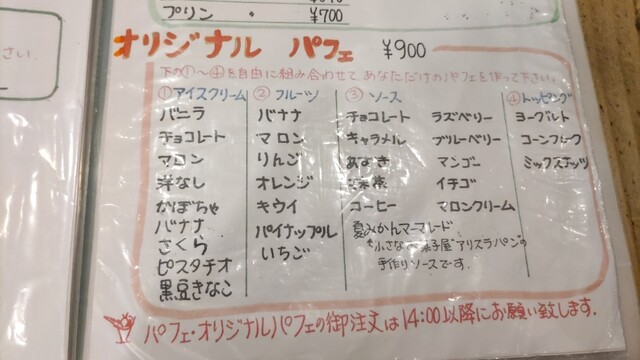 さい.
プリン ・ ¥700
オリジナル パフェ ¥900
下の①〜④を自由に組み合わせて あなただけのパフェを作って下さい.
①アイスクリーム
バニラ
チョコレート
マロン
洋なし
かぼちゃ
バナナ
さくら
ピスタチオ
黒豆きなこ
②フルーツ
バナナ
マロン
りんご
オレンジ
キウイ
パイナップル
いちご
③ソース
チョコレート
キャラメル
あずき
コーヒー
ラズベリー
ブルーベリー
マンゴー
イチゴ
マロンクリーム
夏みかんマーマレード
"小さなお菓子屋"アリスラパン"の
手作りソースです.
④トッピング
ヨーグルト
コーンフレーク
ミックスナッツ
パフェ・オリジナルパフェの御注文は14:00以降にお願い致します.